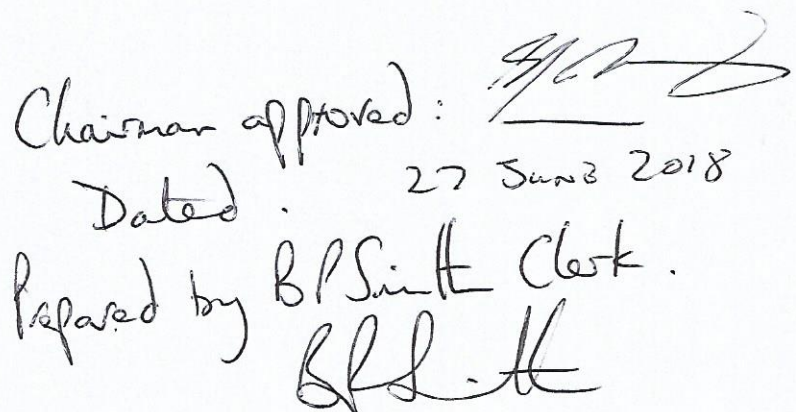 Chairman approved:
Dated. 27 June 2018
Prepared by BP Smith Clerk.
BP Smith